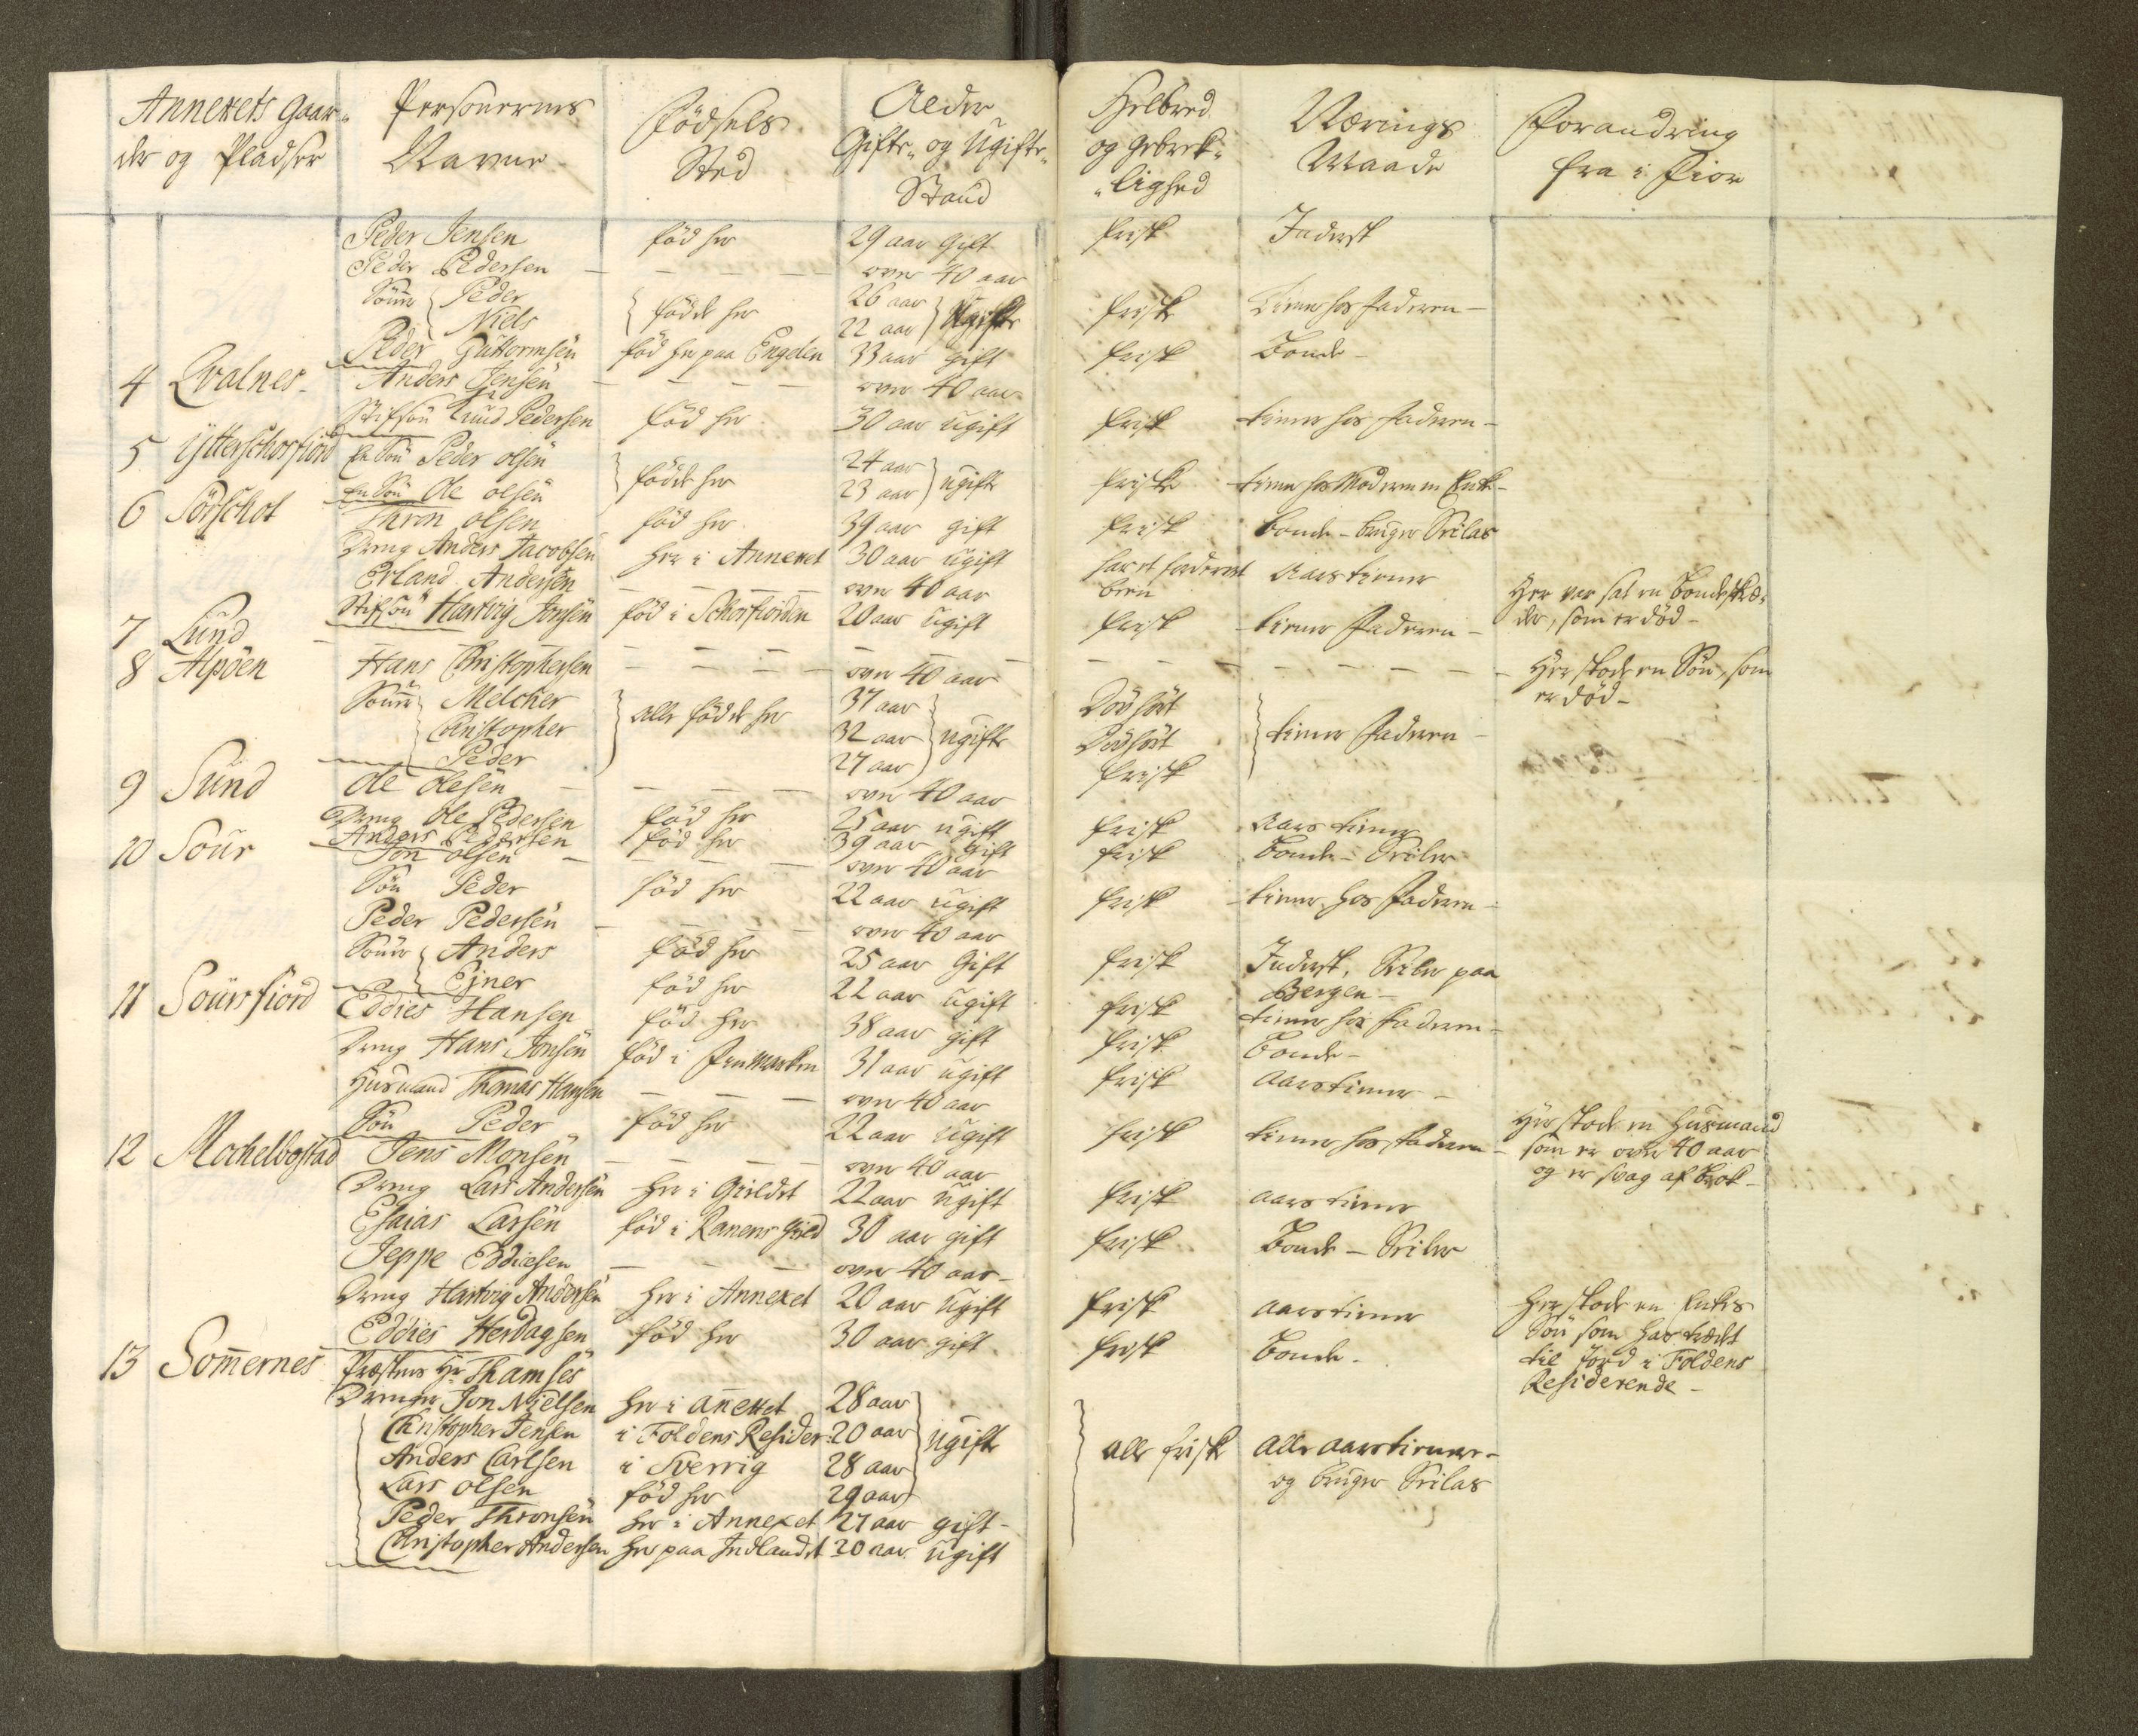 Annexets Gaar„
der og Pladser
Personernes
Navne
Födsels
Sted
Alder
Gifte„ og Ugifte„
Stand
Helbred
og gebrek„
„lighed
Nærings
Maade
Forandring
fra i Fior
Peder Jensen föd her 29 aar Gift frisk Inderst
Peder Pedersen — — — — over 40 aar
Sönner Peder 26 aar
Niels födde her 22 aar Ugifte friske tiener hos Faderen —
Peder Guttormsen föd her paa Engelen 33 aar gift frisk Bonde —
4 Qvalnes — Anders Jensen — — — — over 40 aar
Stifsön Knud Pedersen föd her 30 aar ugift frisk tiener hos Faderen —
5 Ytterschorfiord En Sön Peder olsen 24 aar
En Sön Ole olsen födde her 23 aar ugifte friske tiener hos Moderen en Enke —
6 Sörschot Thron olsen föd her 39 aar gift frisk Bonde — bruger Seilas
Dreng Anders Jacobsen her i Annexet 30 aar ugift har et fordervet
been Aars tiener
Erland Andersen — — — over 40 aar
Her var sat en Bonde
der, som er död —
Stifsön Hartvig Jonsen föd i Schorfiorden 20 aar ugift frisk tiener Faderen —
7 Lund — — — — — — — — — — — Her stode en Sön, som
er död —
8 Alpöen Hans Christophersen — — — — over 40 aar
Sönner Melcher 37 aar Dövhört
Christopher alle födde her 32 aar ugifte Dövhört tiener Faderen —
Peder 27 aar frisk
9 Sund Ole Olesen — — — — over 40 aar
Dreng Ole Pedersen föd her 25 aar ugift frisk Aars tiener
Anders Pedersen föd her 39 aar gift frisk Bonde — Seiler
10 Sour Jon olsen — — — — over 40 aar
Sön Peder föd her 22 aar ugift frisk tiener hos Faderen —
Peder Pedersen — — — — over 40 aar
Sönner Anders föd her 25 aar Gift frisk Inderst, Seiler paa
Bergen —
Ejner föd her 22 aar ugift frisk tiener hos Faderen —
11 Sourfiord Eddies Hansen föd her 38 aar gift frisk Bonde —
Dreng Hans Jonsen föd i Finmarken 31 aar ugift frisk Aarstiener —
Husmand Thomas Hansen — — — over 40 aar
Sön Peder föd her 22 aar ugift frisk tiener hos Faderen —
Her stode en Husmand
som er over 40 aar
og er svag af Brok —
12 Mochelbostad Jens Monsen — — — — over 40 aar
Dreng Lars Andersen her i Gieldet 22 aar ugift frisk aars tiener
Esaias Larsen föd i Ranens Gield 30 aar gift frisk Bonde — Seiler
Jeppe Eddiesen — — — over 40 aar —
Dreng Hartvig Andersen her i Annexet 20 aar Ugift frisk aarstiener
Eddies Herdagsen föd her 30 aar gift frisk Bonde —
Her stode en Enkes
Sön som har
til Jord i Foldens
Residerende —
13 Som̃ernes Præstens Hr Thamses
Drenge Jon Nielsen her i an̄exet 28 aar
Christopher Jensen i Foldens Resider: 20 aar ugifte
Anders Carlsen i Sverrig 28 aar
Lars olsen föd her 29 aar
Peder Thronsen her i Annexet 27 aar gift —
Christopher Andersen her paa Indlandet 20 aar ugift
alle friske alle aarstienere —
og bruger Seilas